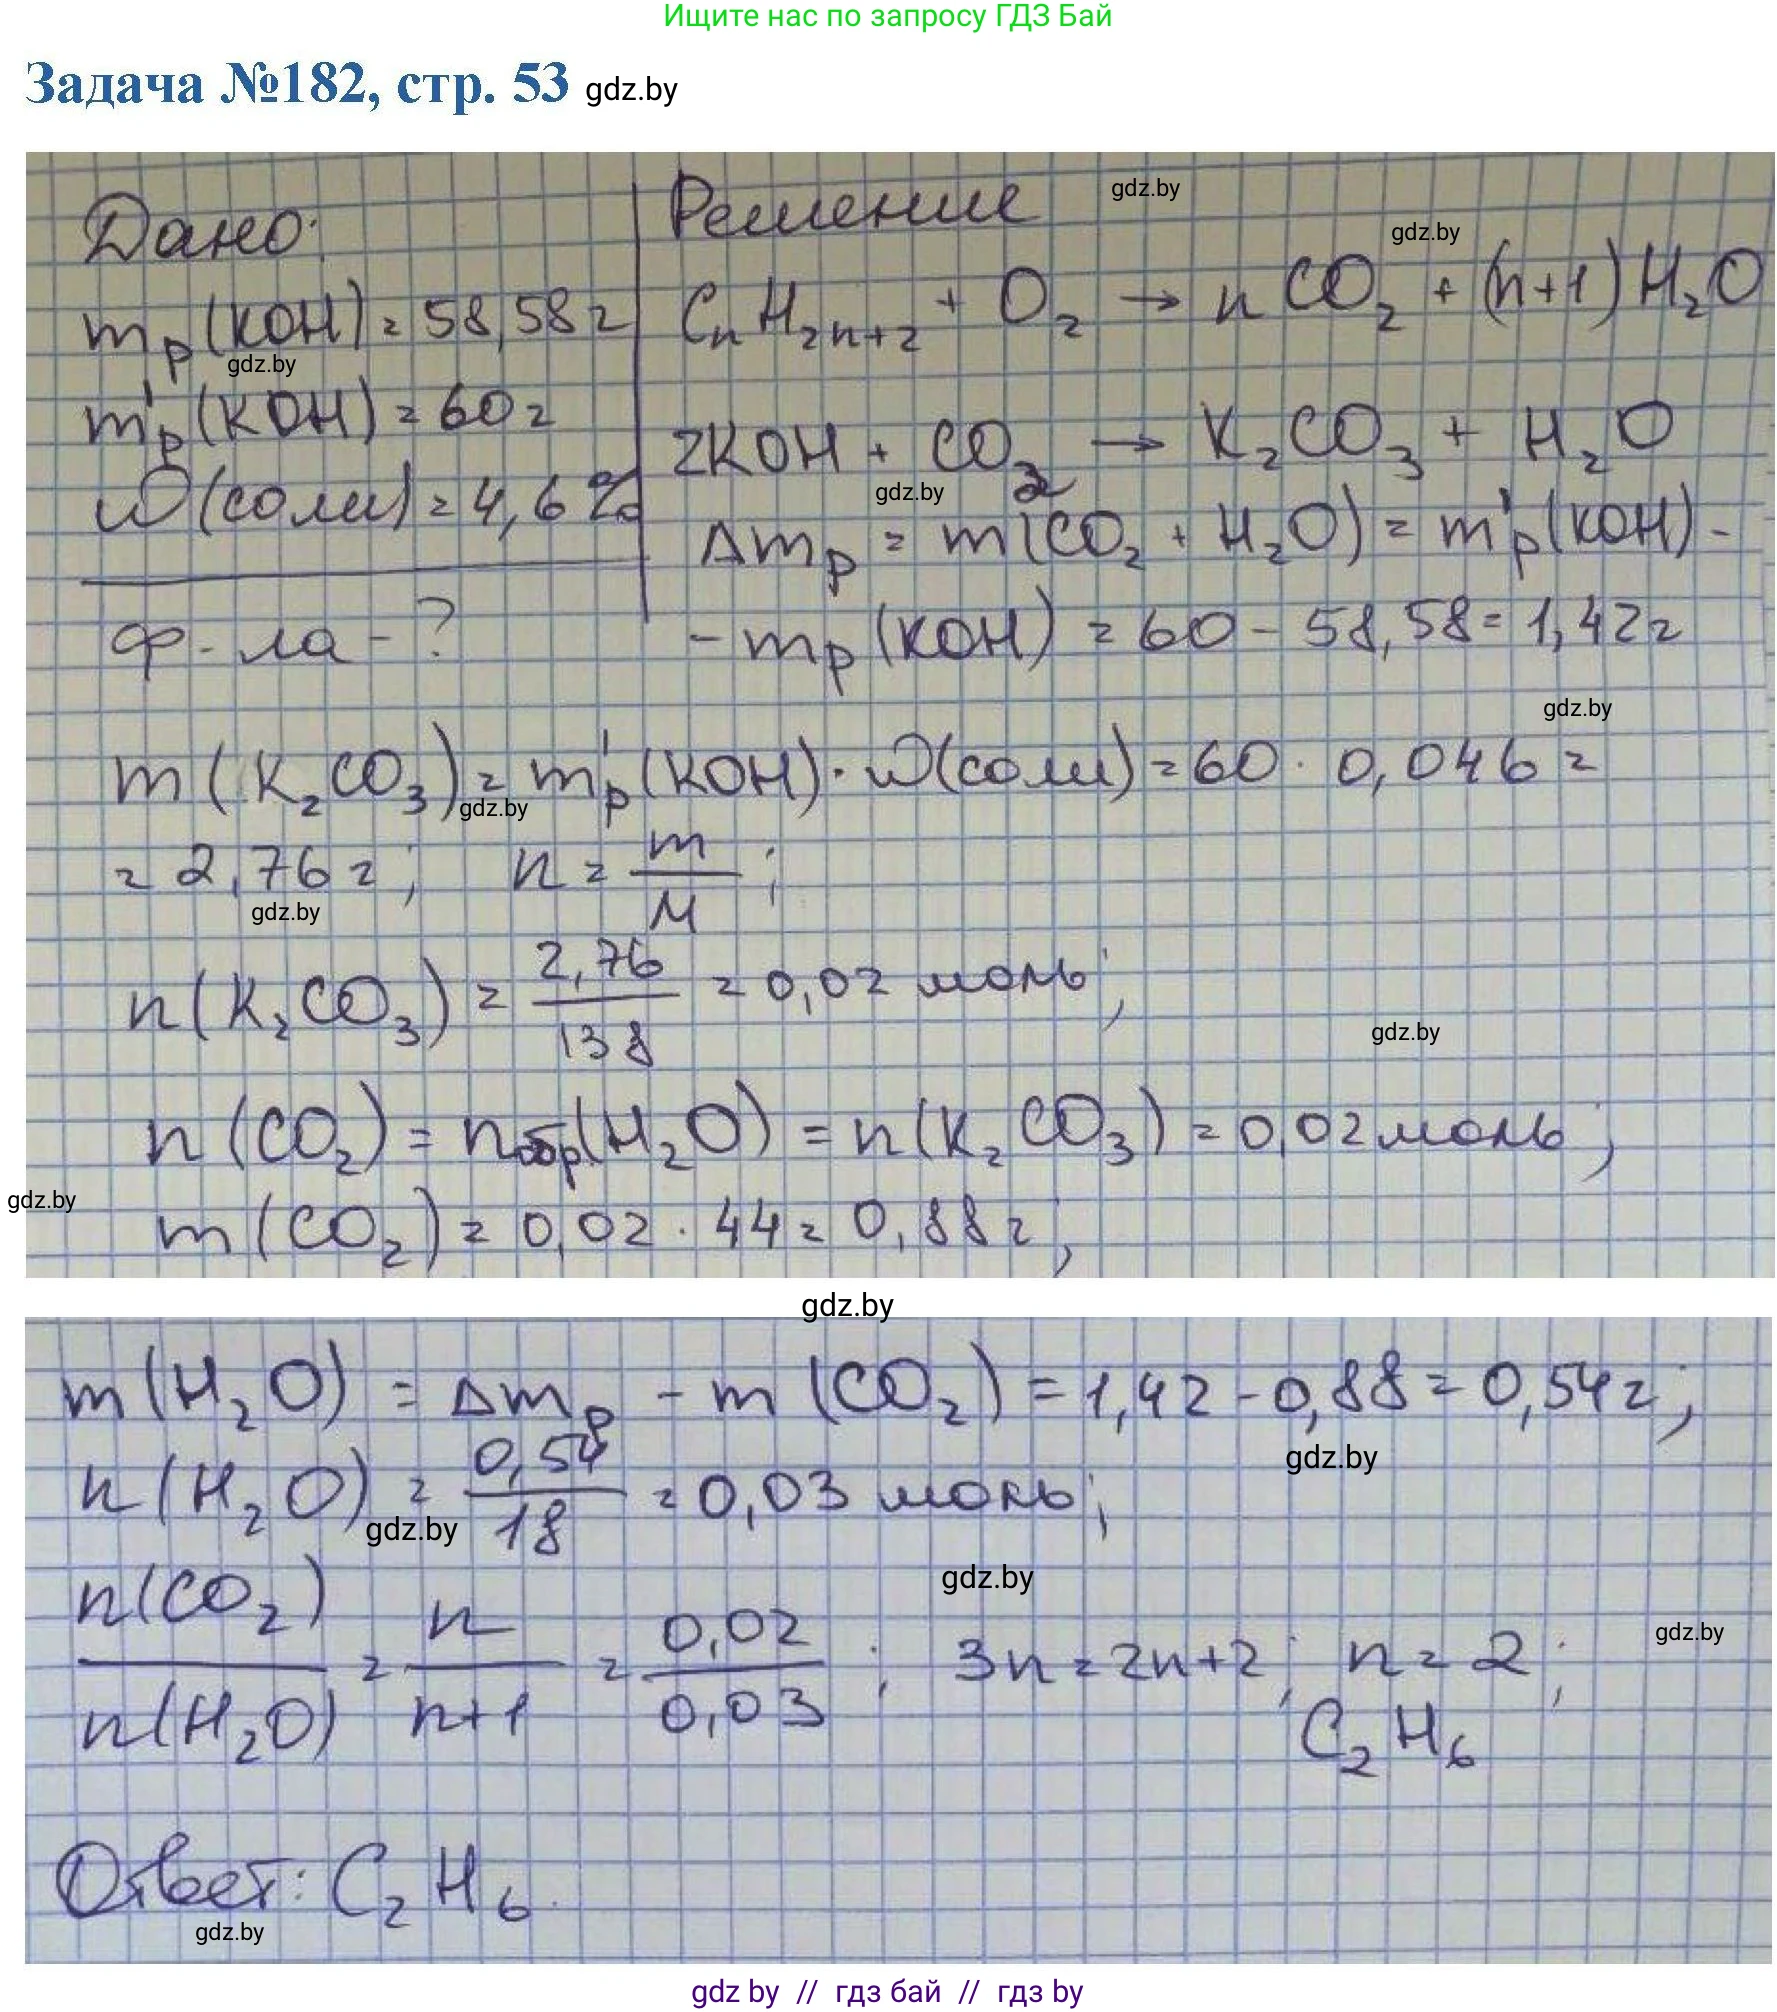 Ищите нас по запросу ГДЗ Бай
Задача №182, стр. 53 gdz.by
Дано:
mр(KOH) = 58,58 г
gdz.by
m'р(KOH) = 60 г
ω(соли) = 4,6 %
ф-ла - ?
Решение gdz.by
gdz.by
CₙH₂ₙ₊₂ + O₂ → nCO₂ + (n+1)H₂O
2KOH + CO₂ → K₂CO₃ + H₂O
gdz.by
Δmр = m(CO₂ + H₂O) = m'р(KOH) -
- mр(KOH) = 60 - 58,58 = 1,42 г
gdz.by
m(K₂CO₃) = m'р(KOH) · ω(соли) = 60 · 0,046 =
gdz.by
= 2,76 г; n = m/M;
gdz.by
n(K₂CO₃) = 2,76/138 = 0,02 моль;
gdz.by
n(CO₂) = nобр(H₂O) = n(K₂CO₃) = 0,02 моль;
gdz.by
m(CO₂) = 0,02 · 44 = 0,88 г;
gdz.by
m(H₂O) = Δmр - m(CO₂) = 1,42 - 0,88 = 0,54 г;
gdz.by
n(H₂O) = 0,54/18 = 0,03 моль;
gdz.by
gdz.by
n(CO₂)/n(H₂O) = n/n+1 = 0,02/0,03; 3n = 2n+2; n = 2;
gdz.by
C₂H₆
Ответ: C₂H₆.
gdz.by
gdz by // гдз бай // гдз by